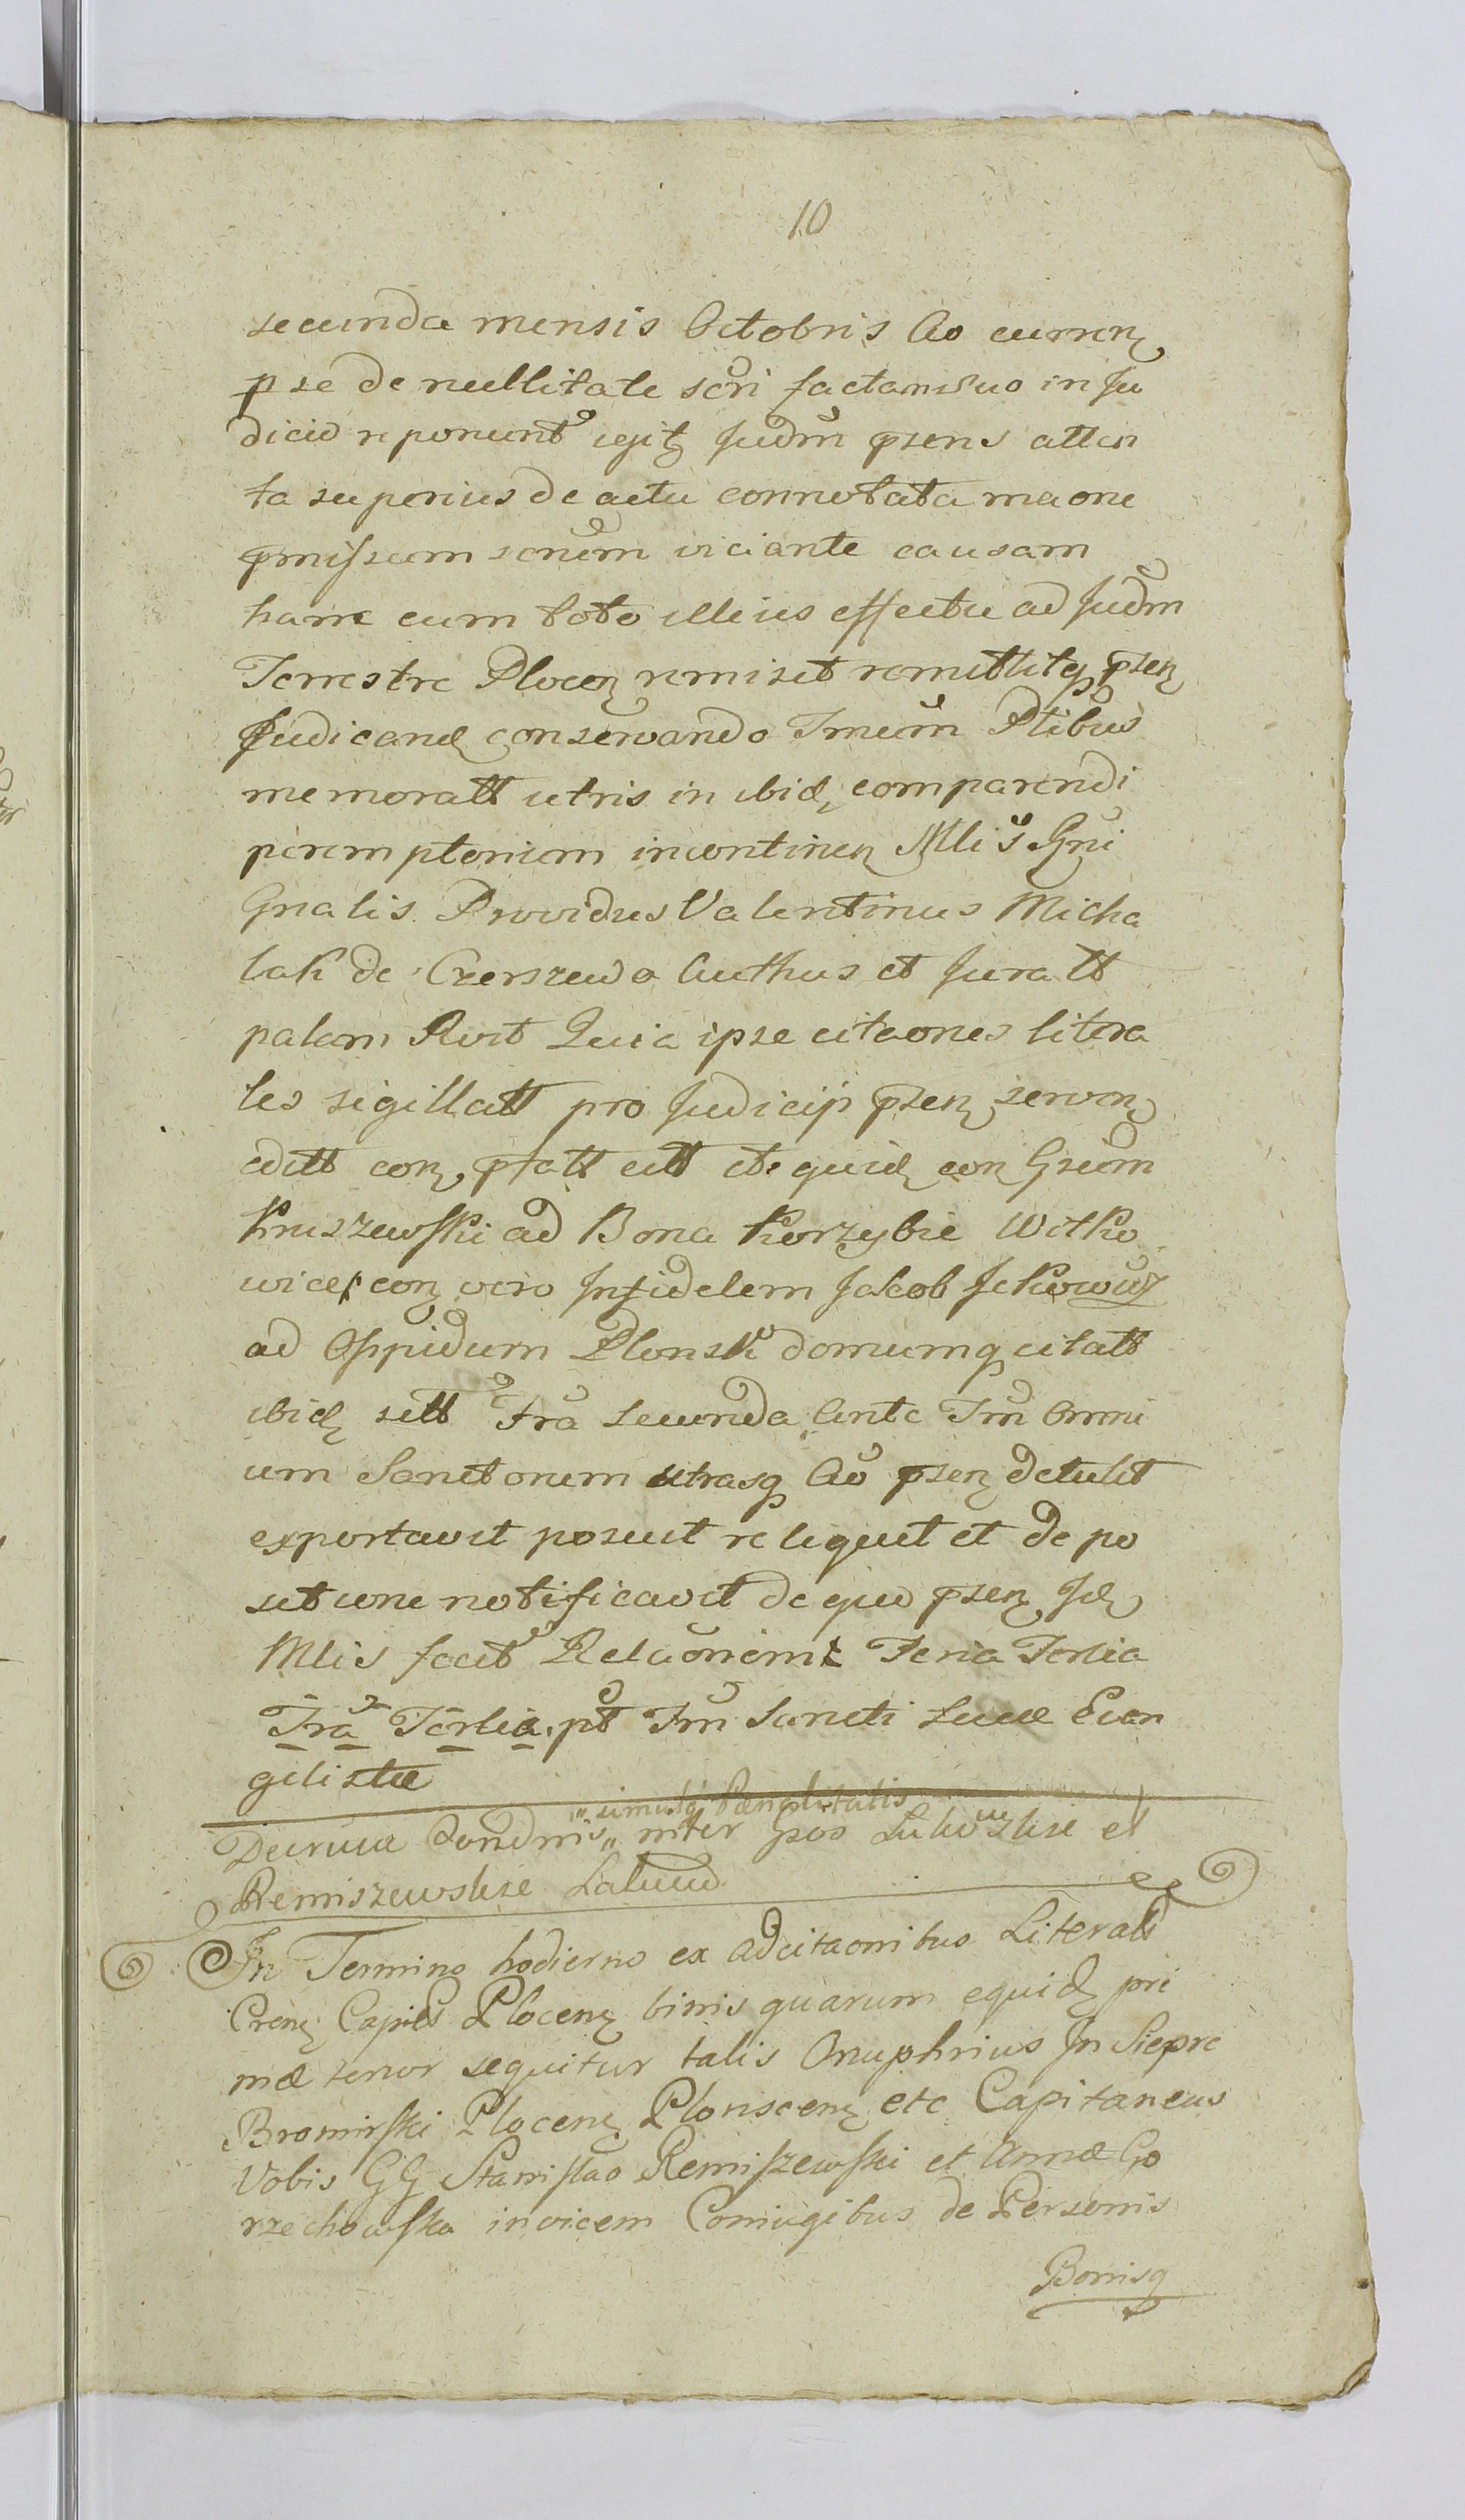 10
secunda mensis Octobris Ao curren
p se de nullitate scri factam suo in Ju
dicio reponunt igit Judm psens atten
ta superius de actu connotata maone
pmissum scrium viciante causam
hanc cum toto illius effectu ad Judm
Terrestre Plocen remisit remittitq psen
Judicand conservando Tmum Ptibus
memoratt utris in ibid comparendi
peremptorium incontinen Mlis Gni
Gnalis Providus Valentinus Micha
lak de Czerszewo Authus et Juratt
palam Rvit Quia ipse citaones litera
les sigillatt pro Judicijs psen servien
editt con pfatt citt et quid con Gsum
Kruszewski ad Bona Korzybie Witko
wice con vero Infidelem Jakob Jckowicz
ad Oppidum Plonsk domumq citatt
ibid sitt Fra secunda ante Fm Omni
um Sanctorum utrasq Ao psen detulit
exportavit posuit reliquit et de po
sitione notificavit de quo psen Jd
Mlis fecit Relaonem Feria Tertia
Fra Tertia pt Fm Sancti Lucæ Evan
gelistæ
simulq Pænalitatis
Decretum Condmis inter Gsos et
Remiszewskie Latum
In Termino hodierno ex adcitaonibus Literali
Cren Capiles Plocen binis quarum equid pri
mæ tenor sequitur talis Onuphrius In Siepre
Bromirski Plocen Plonscen etc Capitaneus
Vobis GG Stanislao Remiszewski et Annæ Go
rzechowska invicem Coniugibus de Personis
Bonisq